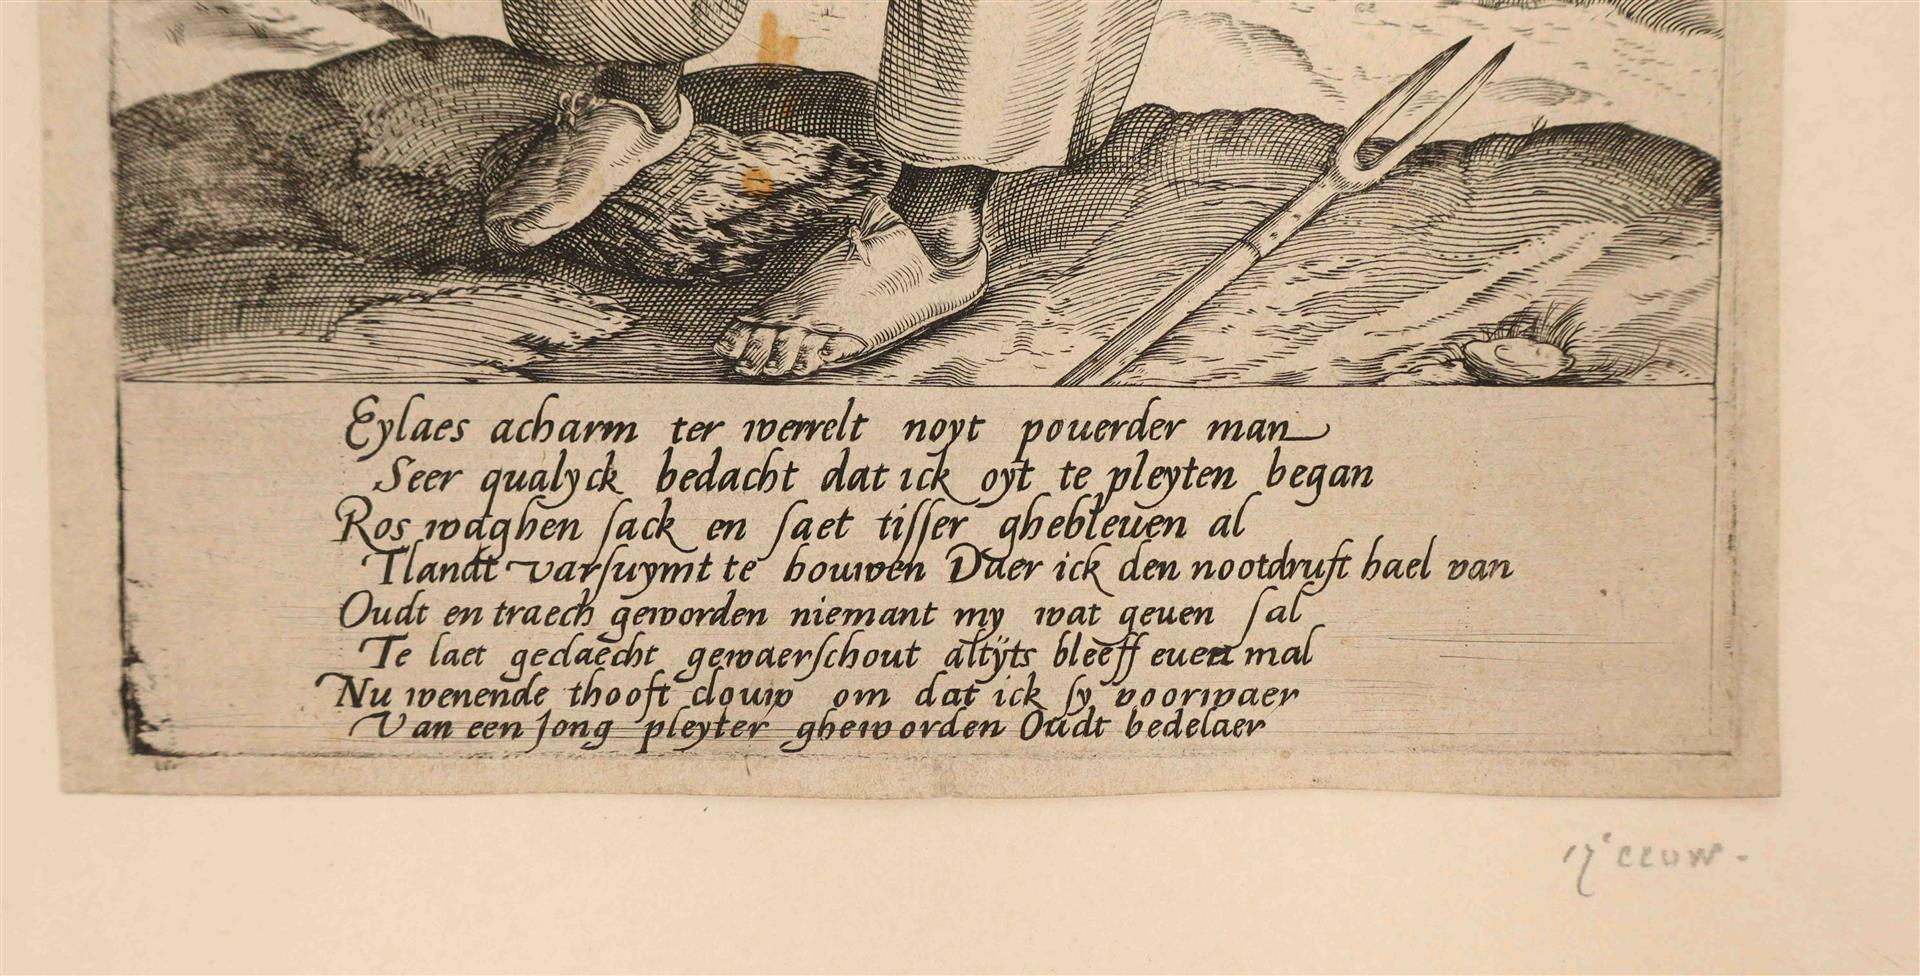 Eylaes acharm ter werrelt noyt pouerder man
Seer qualyck bedacht dat ick oyt te pleyten began
Ros waghen sack en saet tisser ghebleuen al
Tlandt varsuymt te bouwen Daer ick den nootdruft hael van
Oudt en traech geworden niemant my wat geuen sal
Te laet gedaecht gewaerschout altijts bleeff euen mal
Nu wenende thooft clouw om dat ick sy voorwaer
Van een Jong pleyter gheworden Oudt bedelaer
17e eeuw.